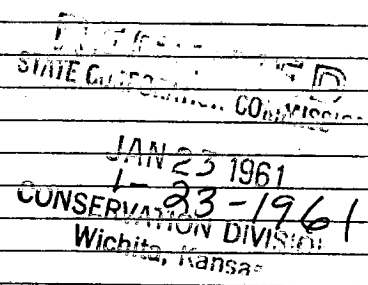 STATE CORPORATION COMMISSION
JAN 23 1961
1-23-1961
CONSERVATION DIVISION
Wichita, Kansas